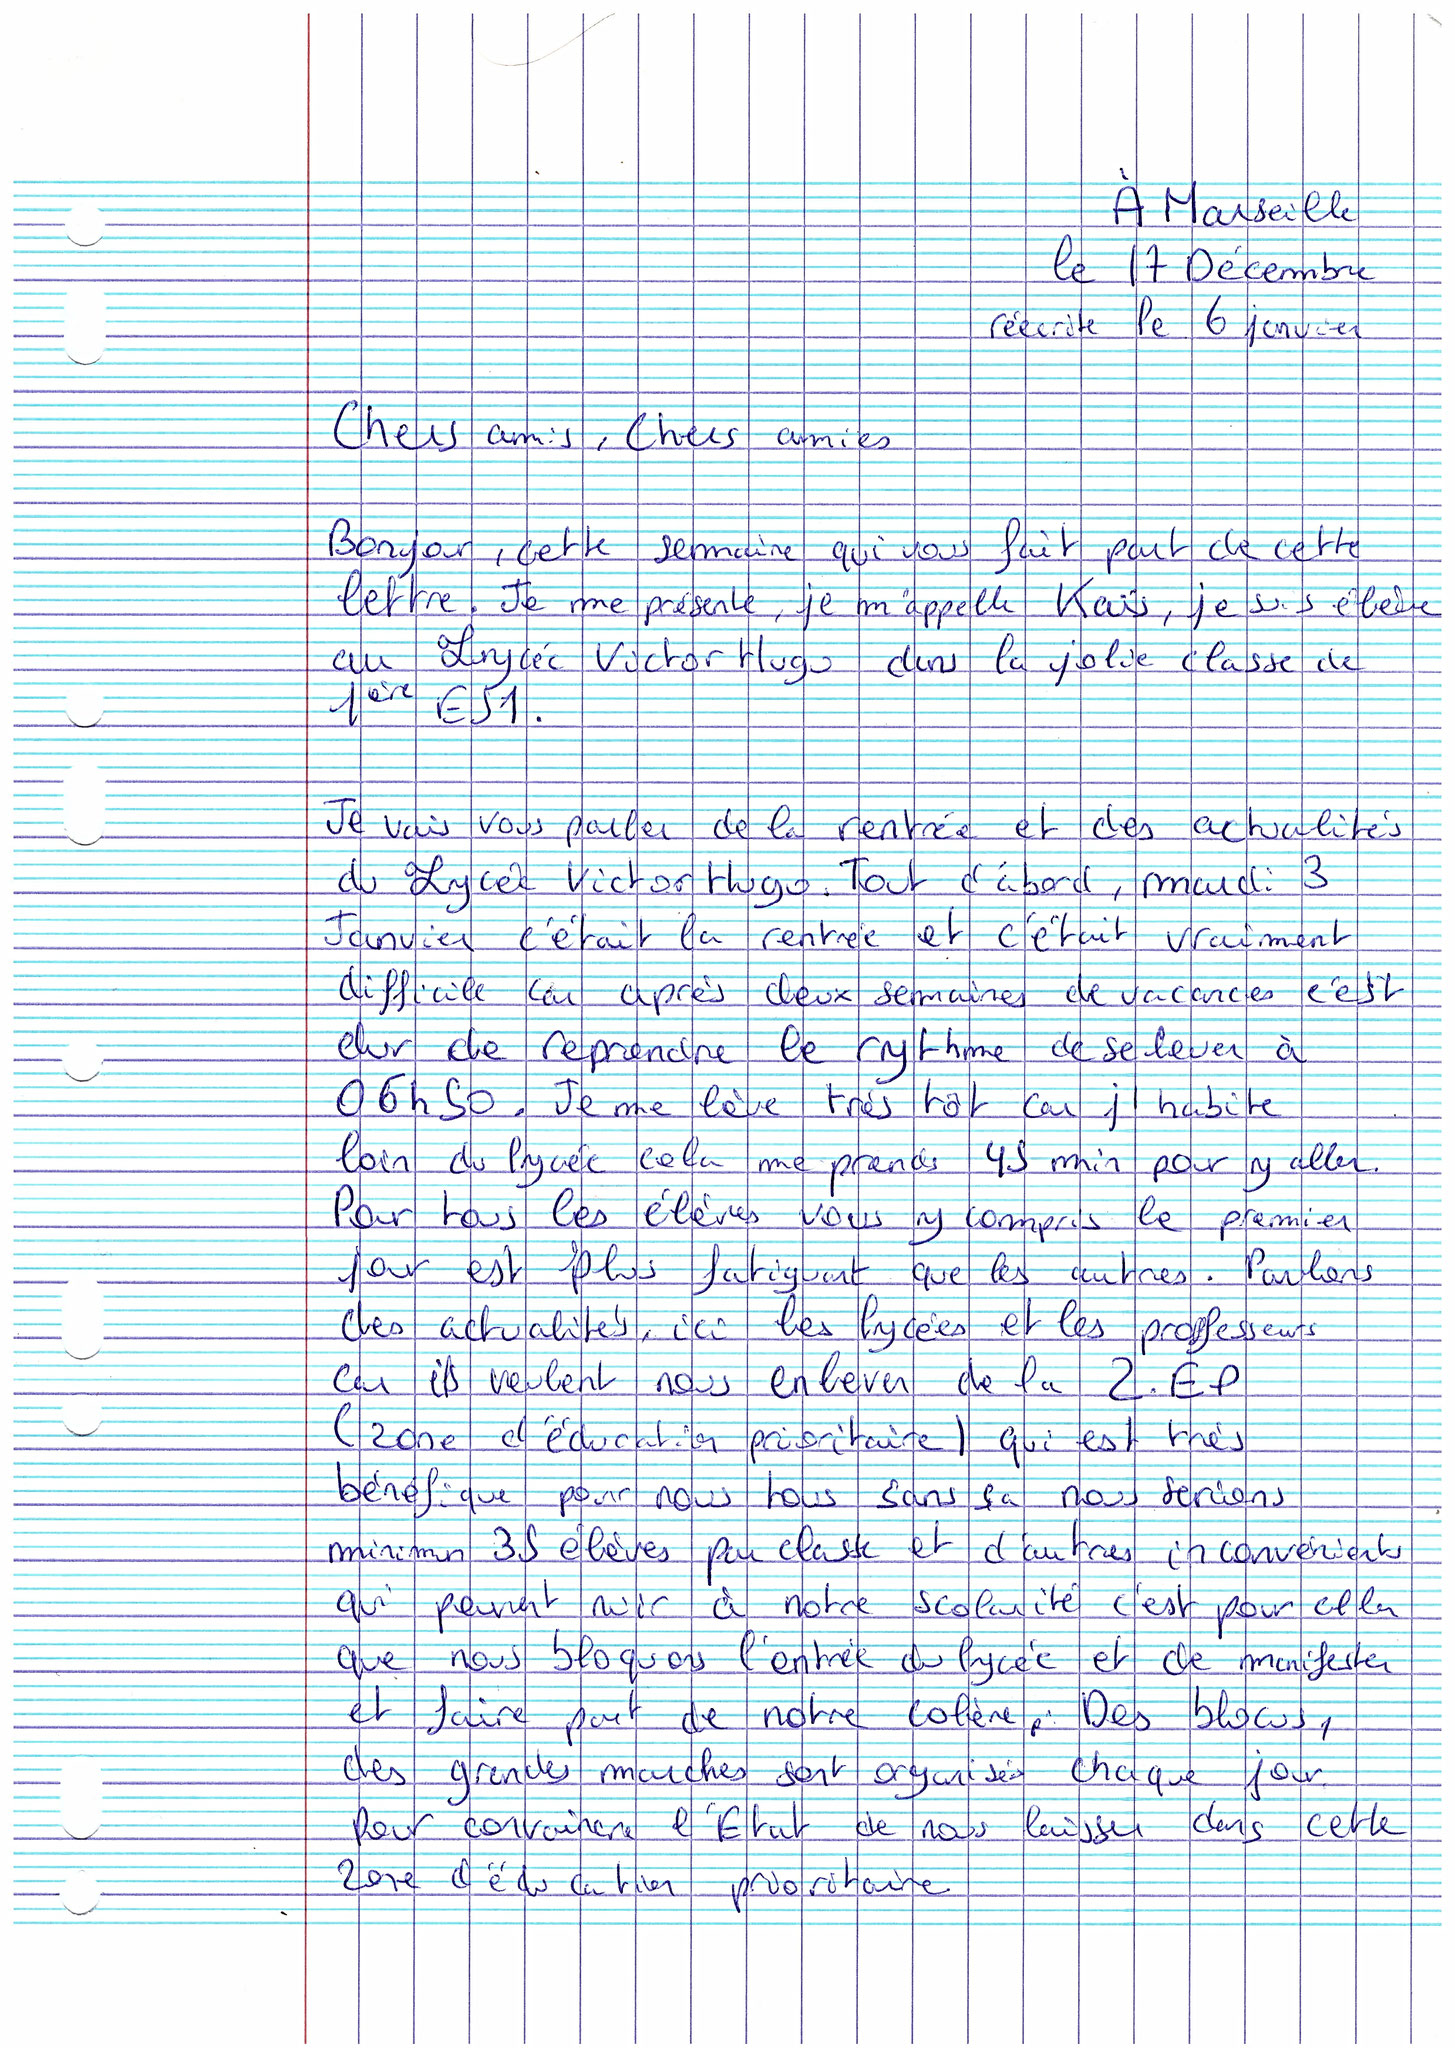 À Marseille
le 17 Décembre
réécrite le 6 janvier
Chers amis, Chers amies
Bonjour, cette semaine qui vous fait part de cette
lettre. Je me présente, je m'appelle Kaïs, je suis élève
au Lycée Victor Hugo dans la jolie classe de
1ère ES1.
Je vais vous parler de la rentrée et des actualités
du Lycée Victor Hugo. Tout d'abord, mardi 3
Janvier c'était la rentrée et c'était vraiment
difficile car après deux semaines de vacances c'est
dur de reprendre le rythme de se lever à
06h50. Je me lève très tôt car j'habite
loin du lycée cela me prends 45 min pour y aller.
Pour tous les élèves vous y compris le premier
jour est plus fatiguant que les autres. Parlons
des actualités, ici les lycées et les professeurs
car ils veulent nous enlever de la Z.EP
(zone d'éducation prioritaire) qui est très
bénéfique pour nous tous sans ça nous serions
minimun 35 élèves par classe et d'autres inconvénients
qui peuvent nuir à notre scolarité c'est pour cella
que nous bloquons l'entrée du lycée et de manifester
et faire part de notre colère. Des blocus,
des grandes marches sont organisés chaque jour
pour convaincre l'Etat de nous laisser dans cette
zone d'éducation prioritaire